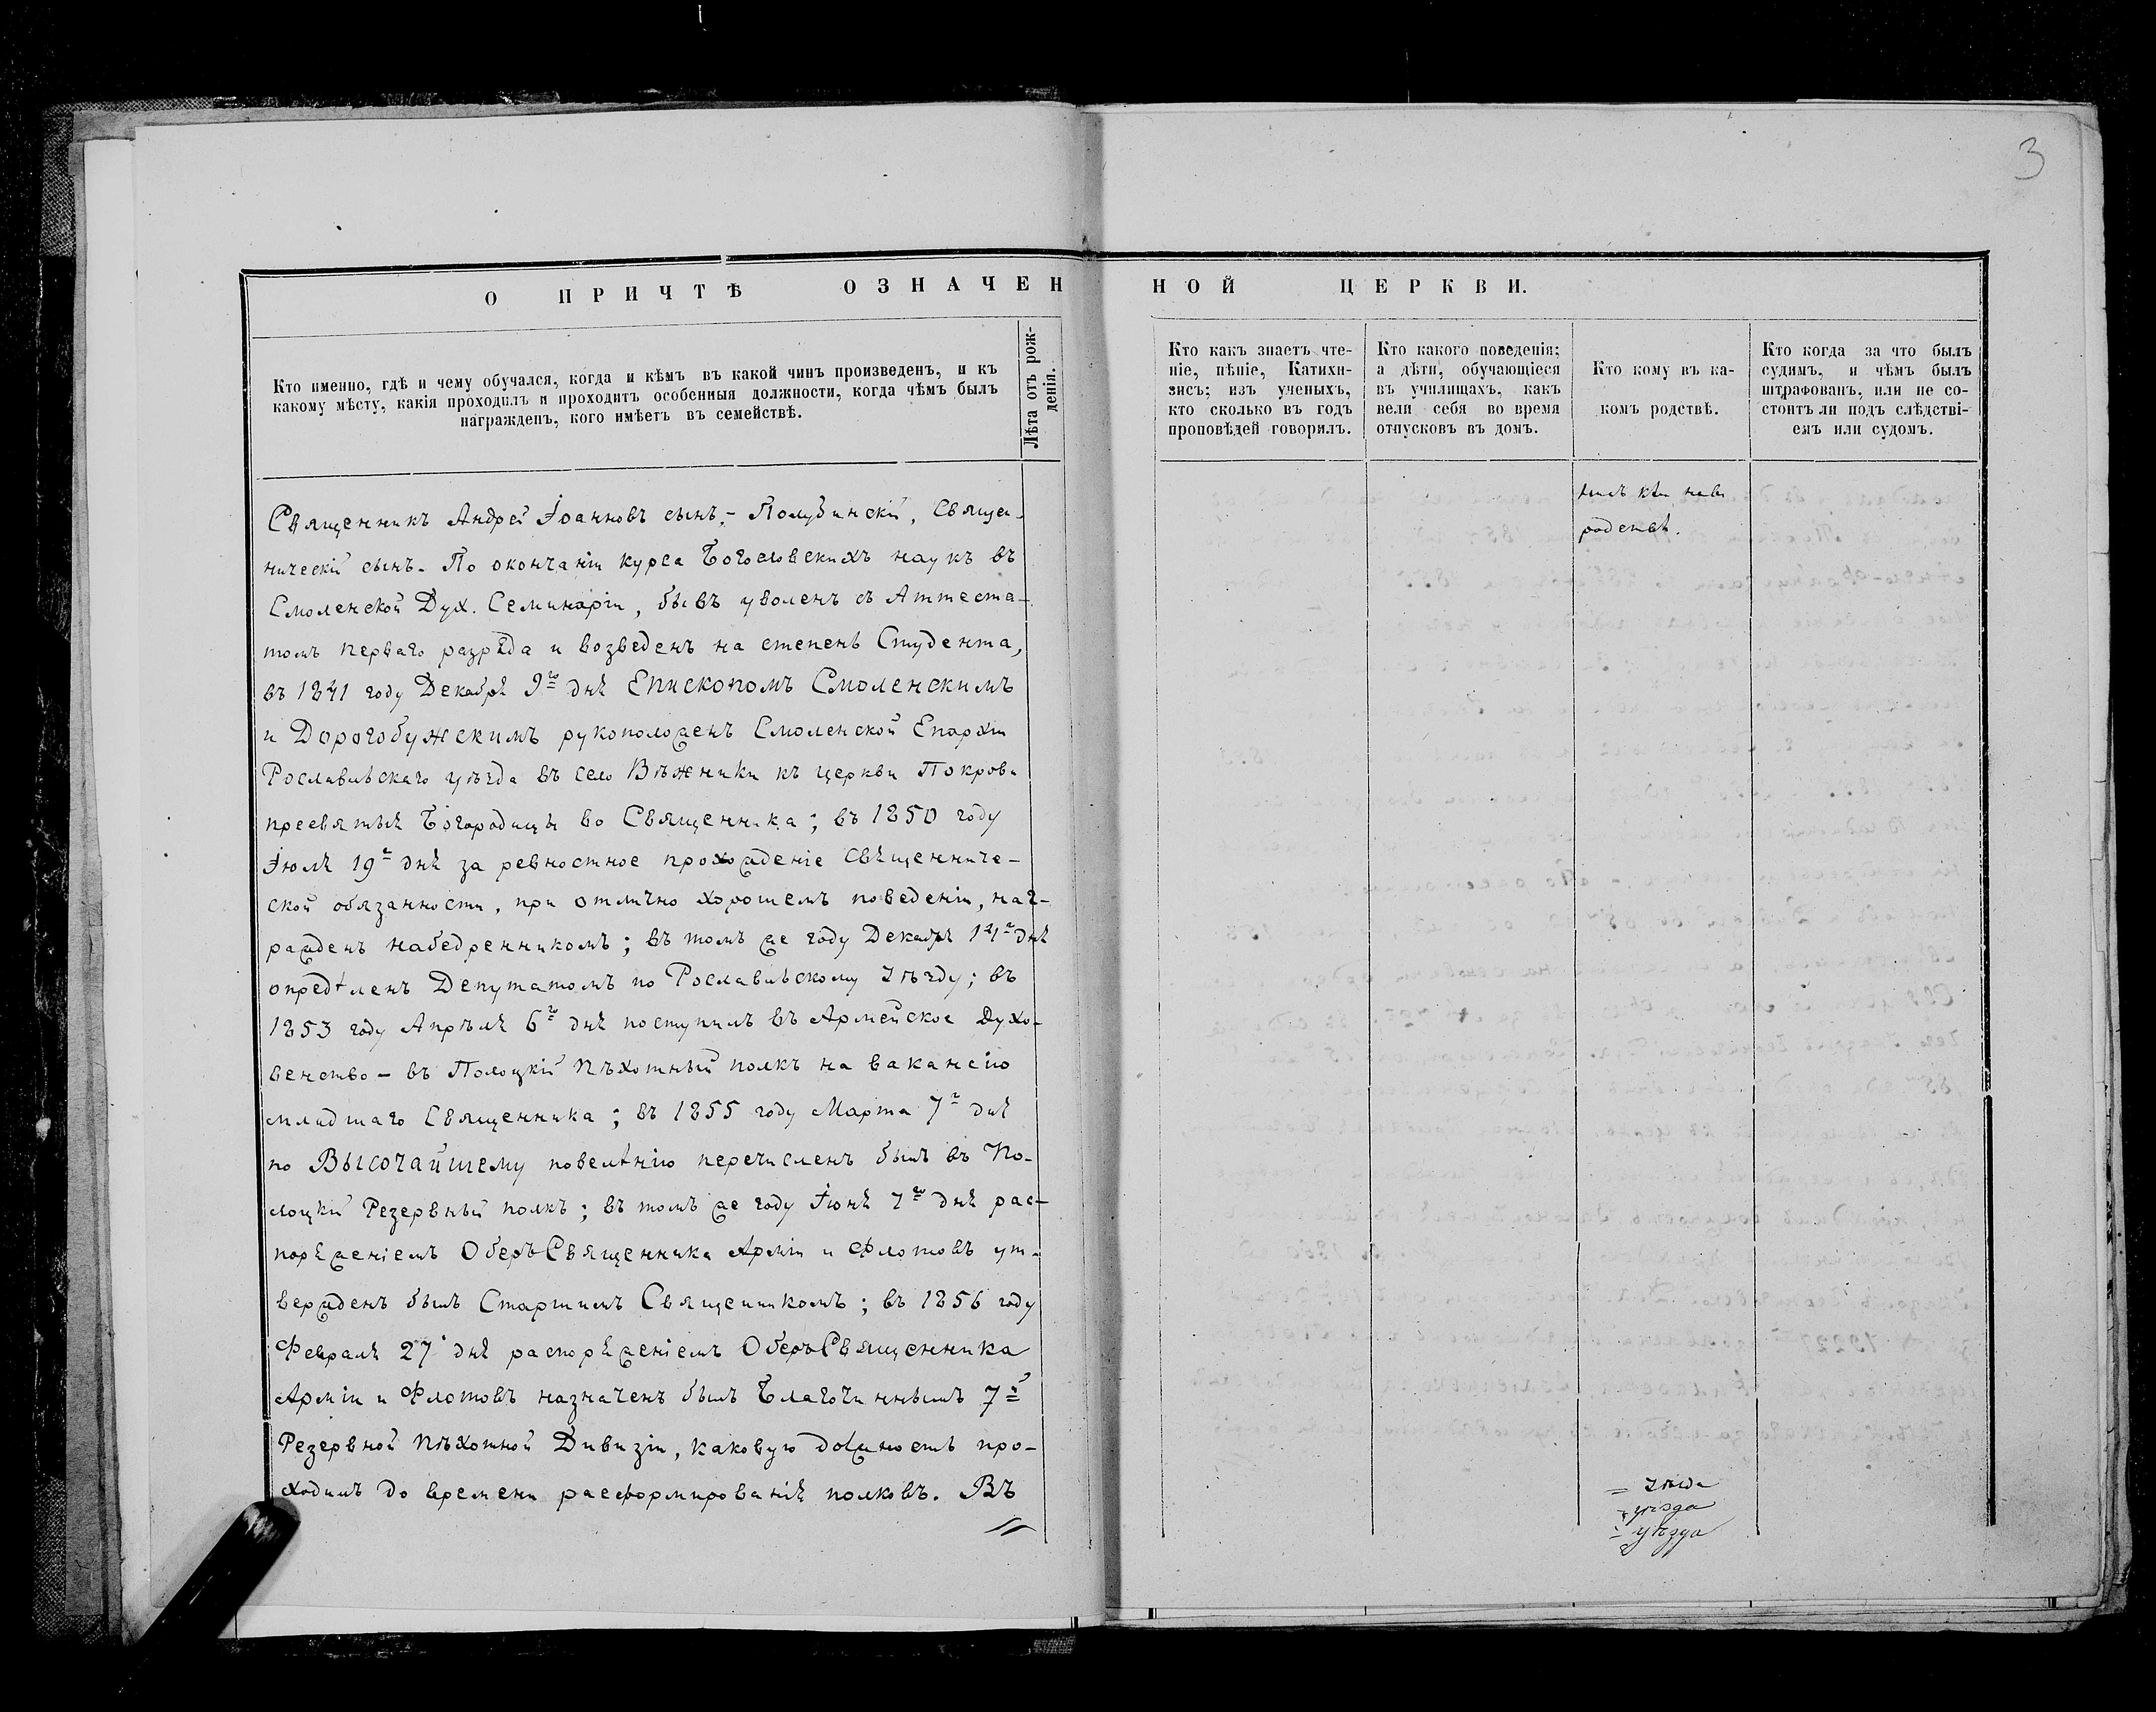 3
О ПРИЧТѢ ОЗНАЧЕННОЙ ЦЕРКВИ.
Кто именно, гдѣ и чему обучался, когда и кѣмъ въ какой чинъ произведенъ, и къ
какому мѣсту, какія проходилъ и проходитъ особенныя должности, когда чѣмъ былъ
награжденъ, кого имѣетъ въ семействѣ.
Лѣта отъ рож-
денія.
Кто какъ знаетъ чте-
ніе, пѣніе, Катихи-
зисъ; изъ ученыхъ,
кто сколько въ годъ
проповѣдей говорилъ.
Кто какого поведенія;
а дѣти, обучающіеся
въ училищахъ, какъ
вели себя во время
отпусковъ въ домъ.
Кто кому въ ка-
комъ родствѣ.
Кто когда за что былъ
судимъ, и чѣмъ былъ
штрафованъ, или не со-
стоитъ ли подъ слѣдстві-
емъ или судомъ.
Священникъ Андрей Іоанновъ сынъ,- Полубинскій, Священ-
ническій сынъ. По окончаніи курса Богословскихъ наукъ въ
Смоленской Дух. Семинаріи, бывъ уволенъ съ Аттеста-
томъ перваго разряда и возведенъ на степень Студента,
въ 1841 году Декабря 9го дня Епископомъ Смоленскимъ
и Дорогобужскимъ рукоположенъ Смоленской Епархіи
Рославльскаго уѣзда въ село Вѣжники къ церкви Покрова
пресвятыя Богородицы во Священника; въ 1850 году
Іюля 19го дня за ревностное прохожденіе Священниче-
ской обязанности, при отлично хорошемъ поведеніи, наг-
ражденъ набедренникомъ; въ томъ же году Декабря 14го дня
опредѣленъ Депутатомъ по Рославльскому Уѣзду; въ
1853 году Апрѣля 6го дня поступилъ въ Армейское Духо-
венство - въ Полоцкій Пѣхотный полкъ на вакансію
младшаго Священника; въ 1855 году Марта 7го дня
по Высочайшему повелѣнію перечисленъ былъ въ По-
лоцкій Резервный полкъ; въ томъ же году Іюня 7го дня рас-
поряженіемъ Оберъ Священника Арміи и Флотовъ ут-
вержденъ былъ Старшимъ Священникомъ; въ 1856 году
Февраля 27 дня распоряженіемъ Оберъ Священника
Арміи и Флотовъ назначенъ былъ Благочиннымъ 7й
Резервной Пѣхотной Дивизіи, каковую должность про-
ходилъ до времени расформированія полковъ. Въ
родствѣ.
уѣзда
уѣзда